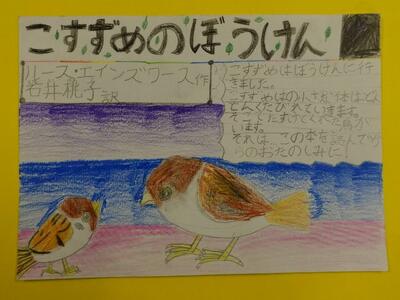 こすずめのぼうけん
ルース・エインズワース作
岩井桃子訳
こすずめはぼうけんに行
きました。
こすずめの小さな体はどん
どんくたびれていきます。
そこでたすけてくれた鳥が
います。
それは、この本を読んでか
らのおたのしみに!